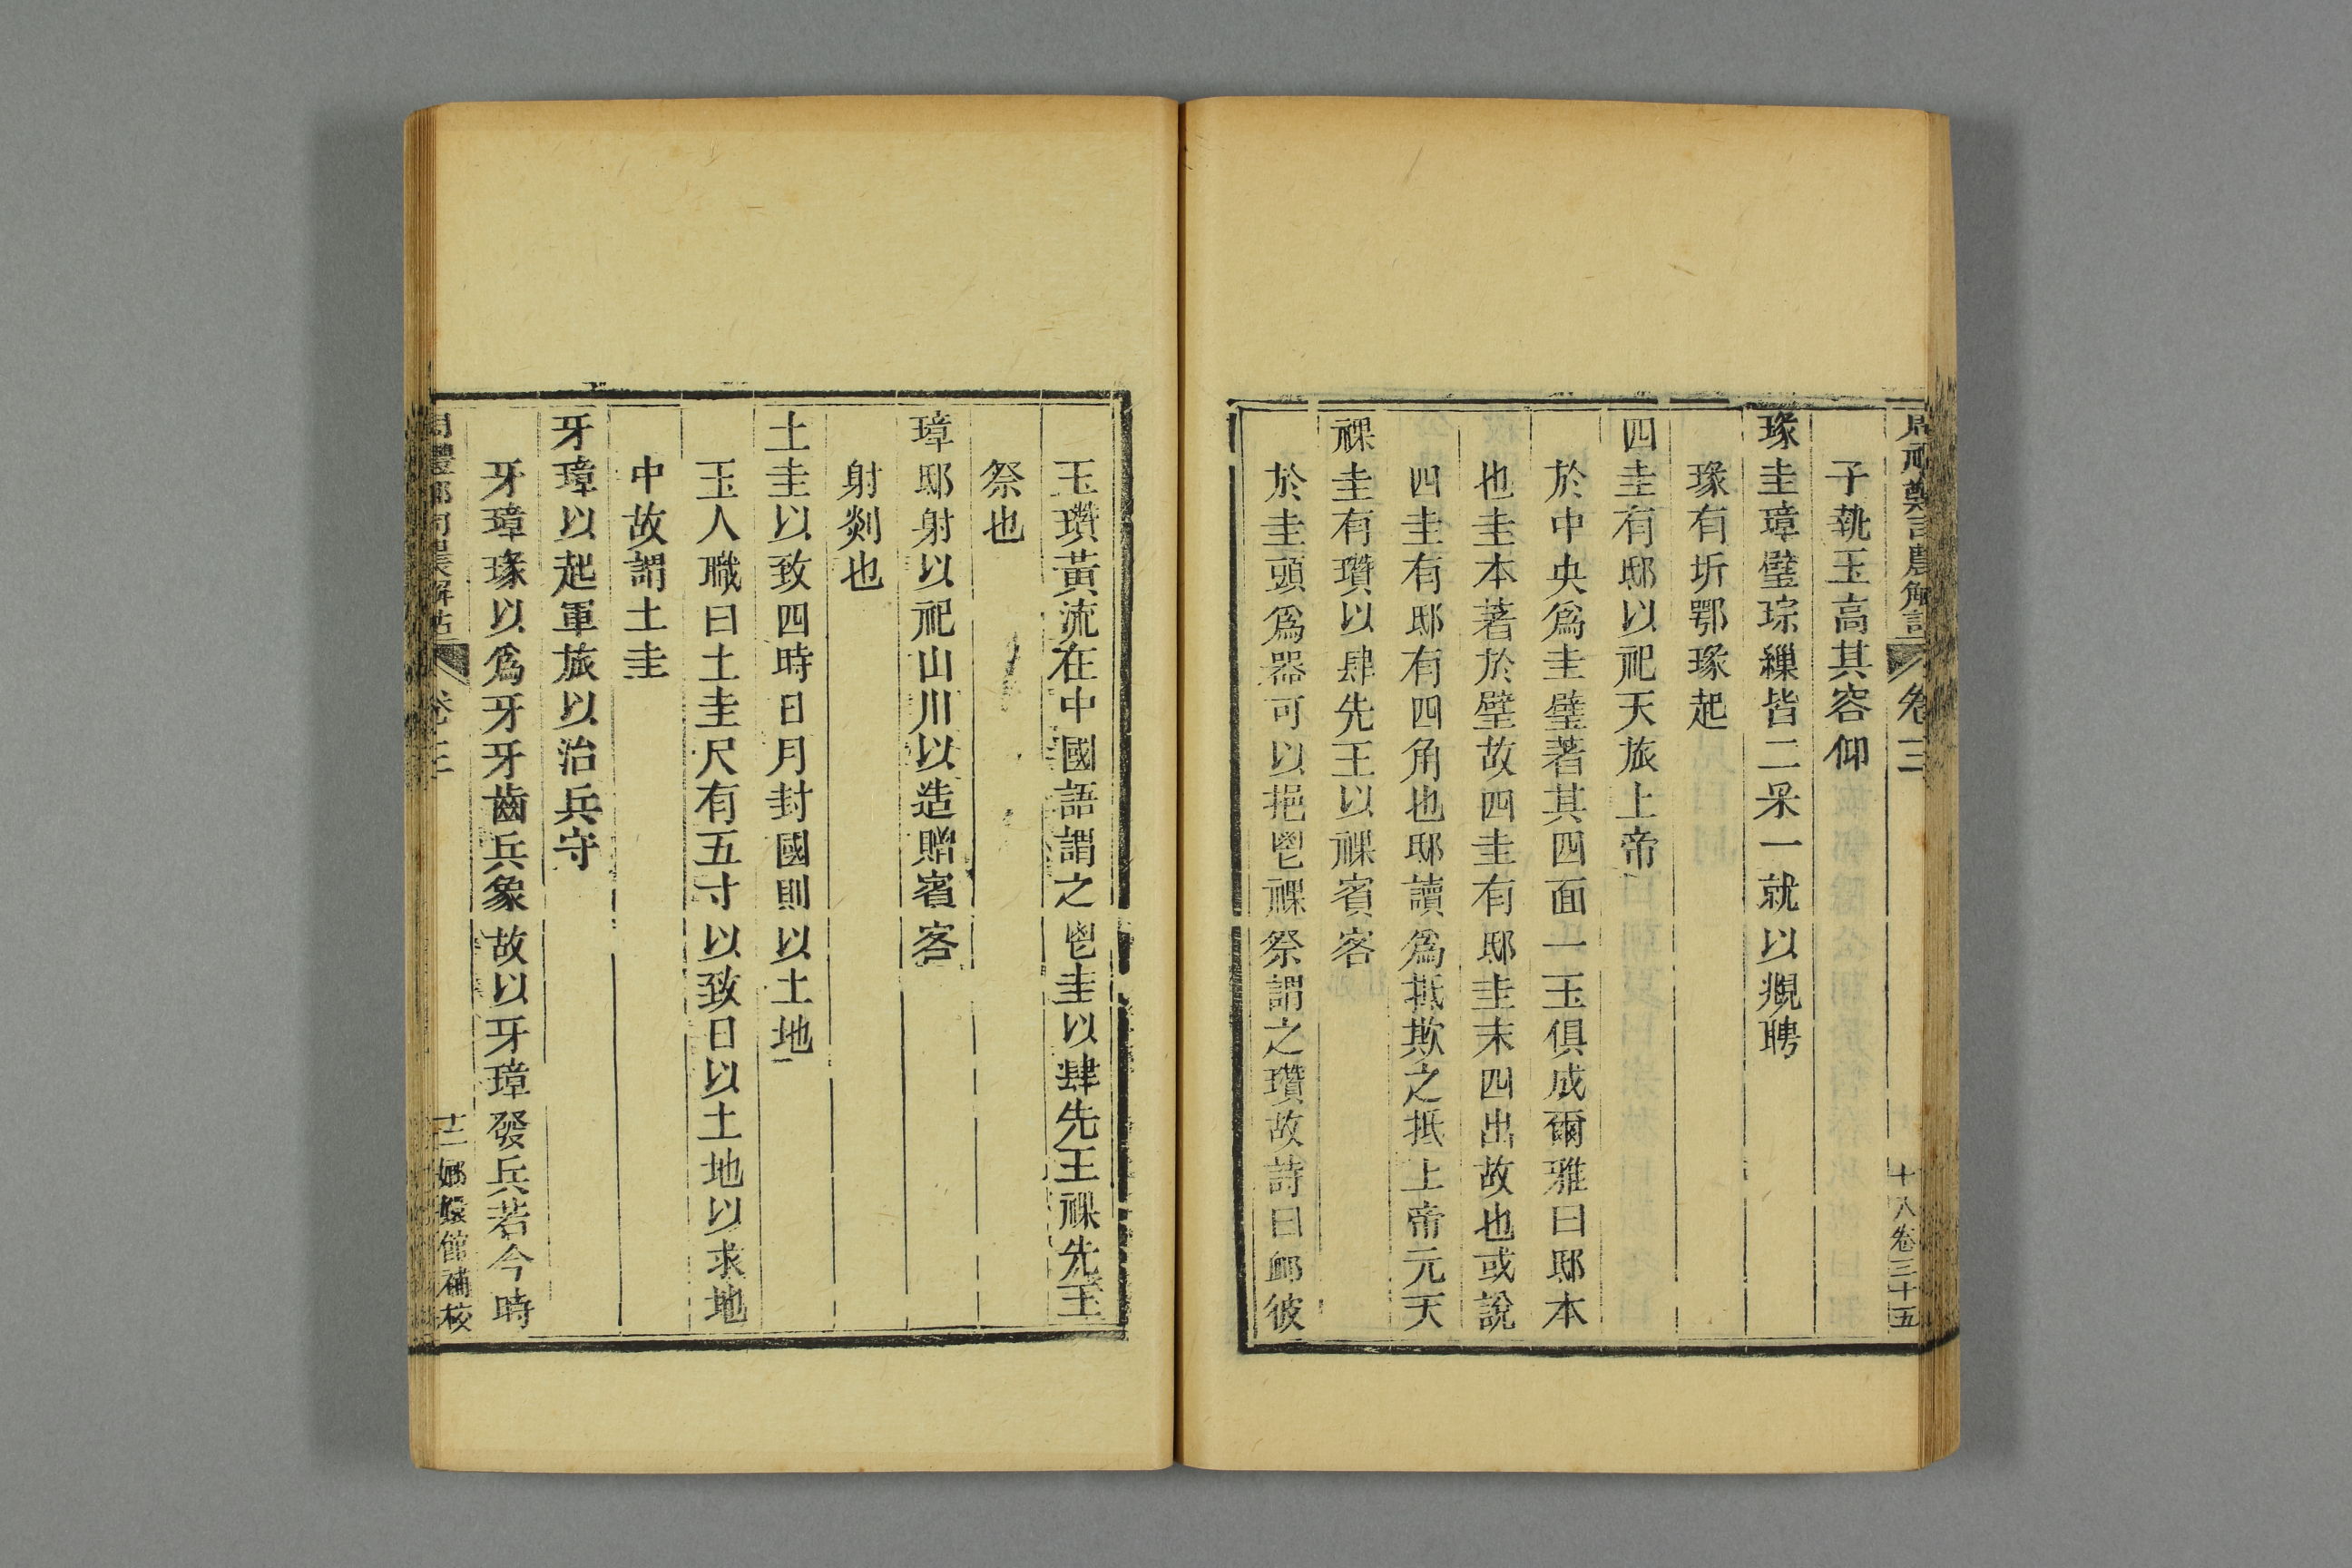 子執玉高其容仰
瑑圭璋璧琮繅皆二采一就以覜聘
瑑有圻鄂瑑起
四圭有邸以祀天旅上帝
於中央爲圭璧著其四面一玉俱成爾雅曰邸本
也圭本著於璧故四圭有邸圭末四出故也或說
四圭有邸有四角也邸讀爲抵欺之抵上帝元天
祼圭有瓚以肆先王以祼賓客
於圭頭爲器可以挹鬯祼祭謂之瓚故詩曰卹彼
玉瓚黃流在中國語謂之鬯圭以肆先王祼先王
祭也
璋邸射以祀山川以造贈賓客
射剡也
土圭以致四時日月封國則以土地
玉人職曰土圭尺有五寸以致日以土地以求地
中故謂土圭
牙璋以起軍旅以治兵守
牙璋瑑以爲牙牙齒兵象故以牙璋發兵若今時
卷三
十八卷三十五
十二
嫏嬛館補校